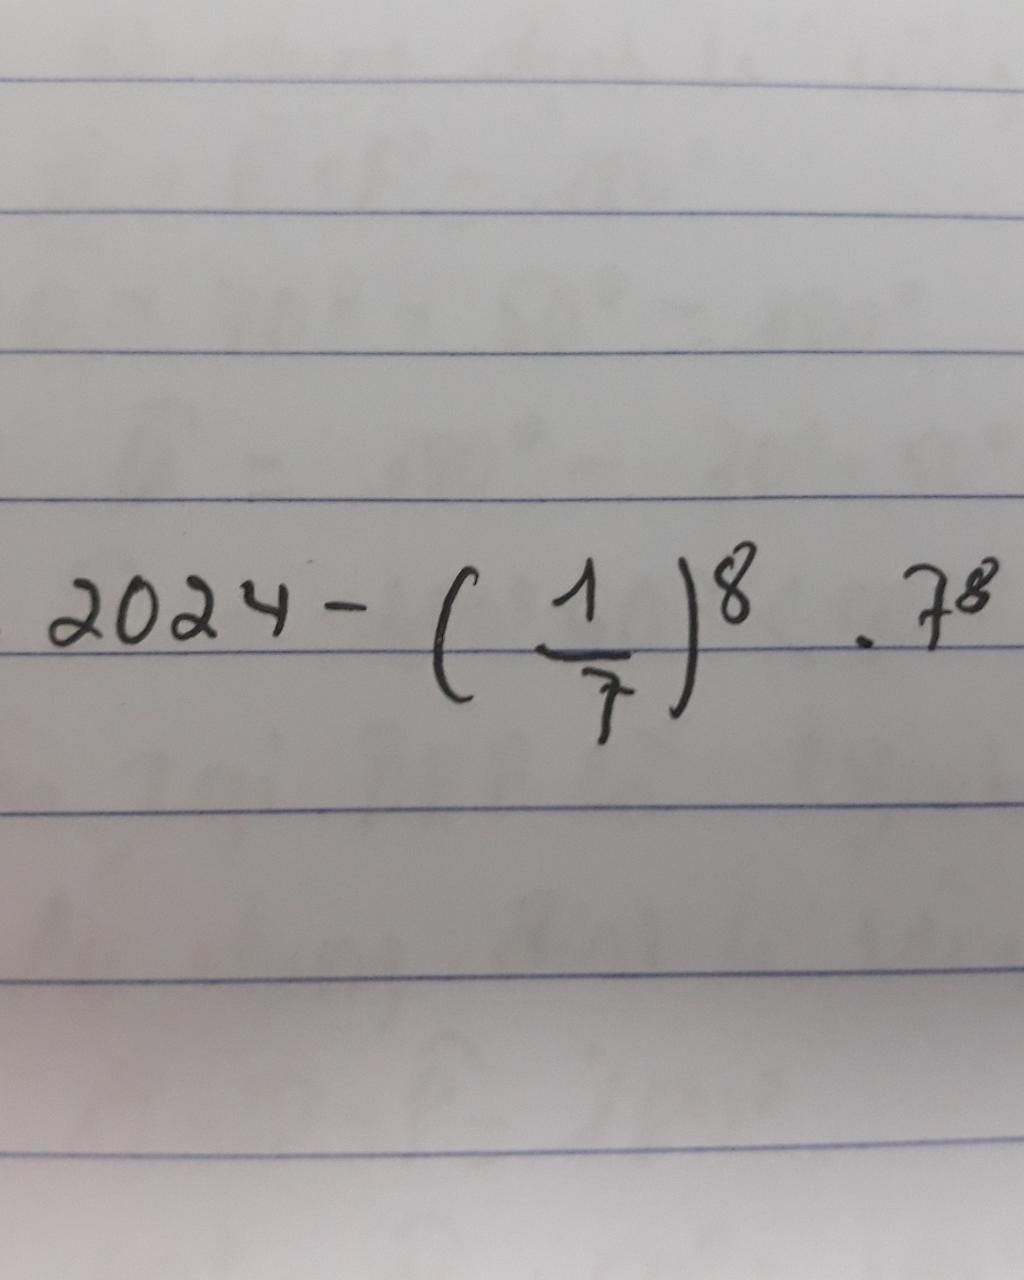 2024 - ( 1/7 )⁸ . 7⁸